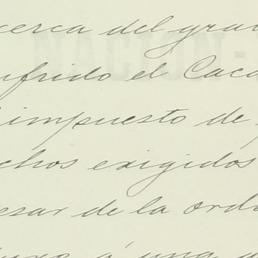 acerca del grav
ufrido el Caca
impuesto de
chos exigidos
esar de la orde
á una